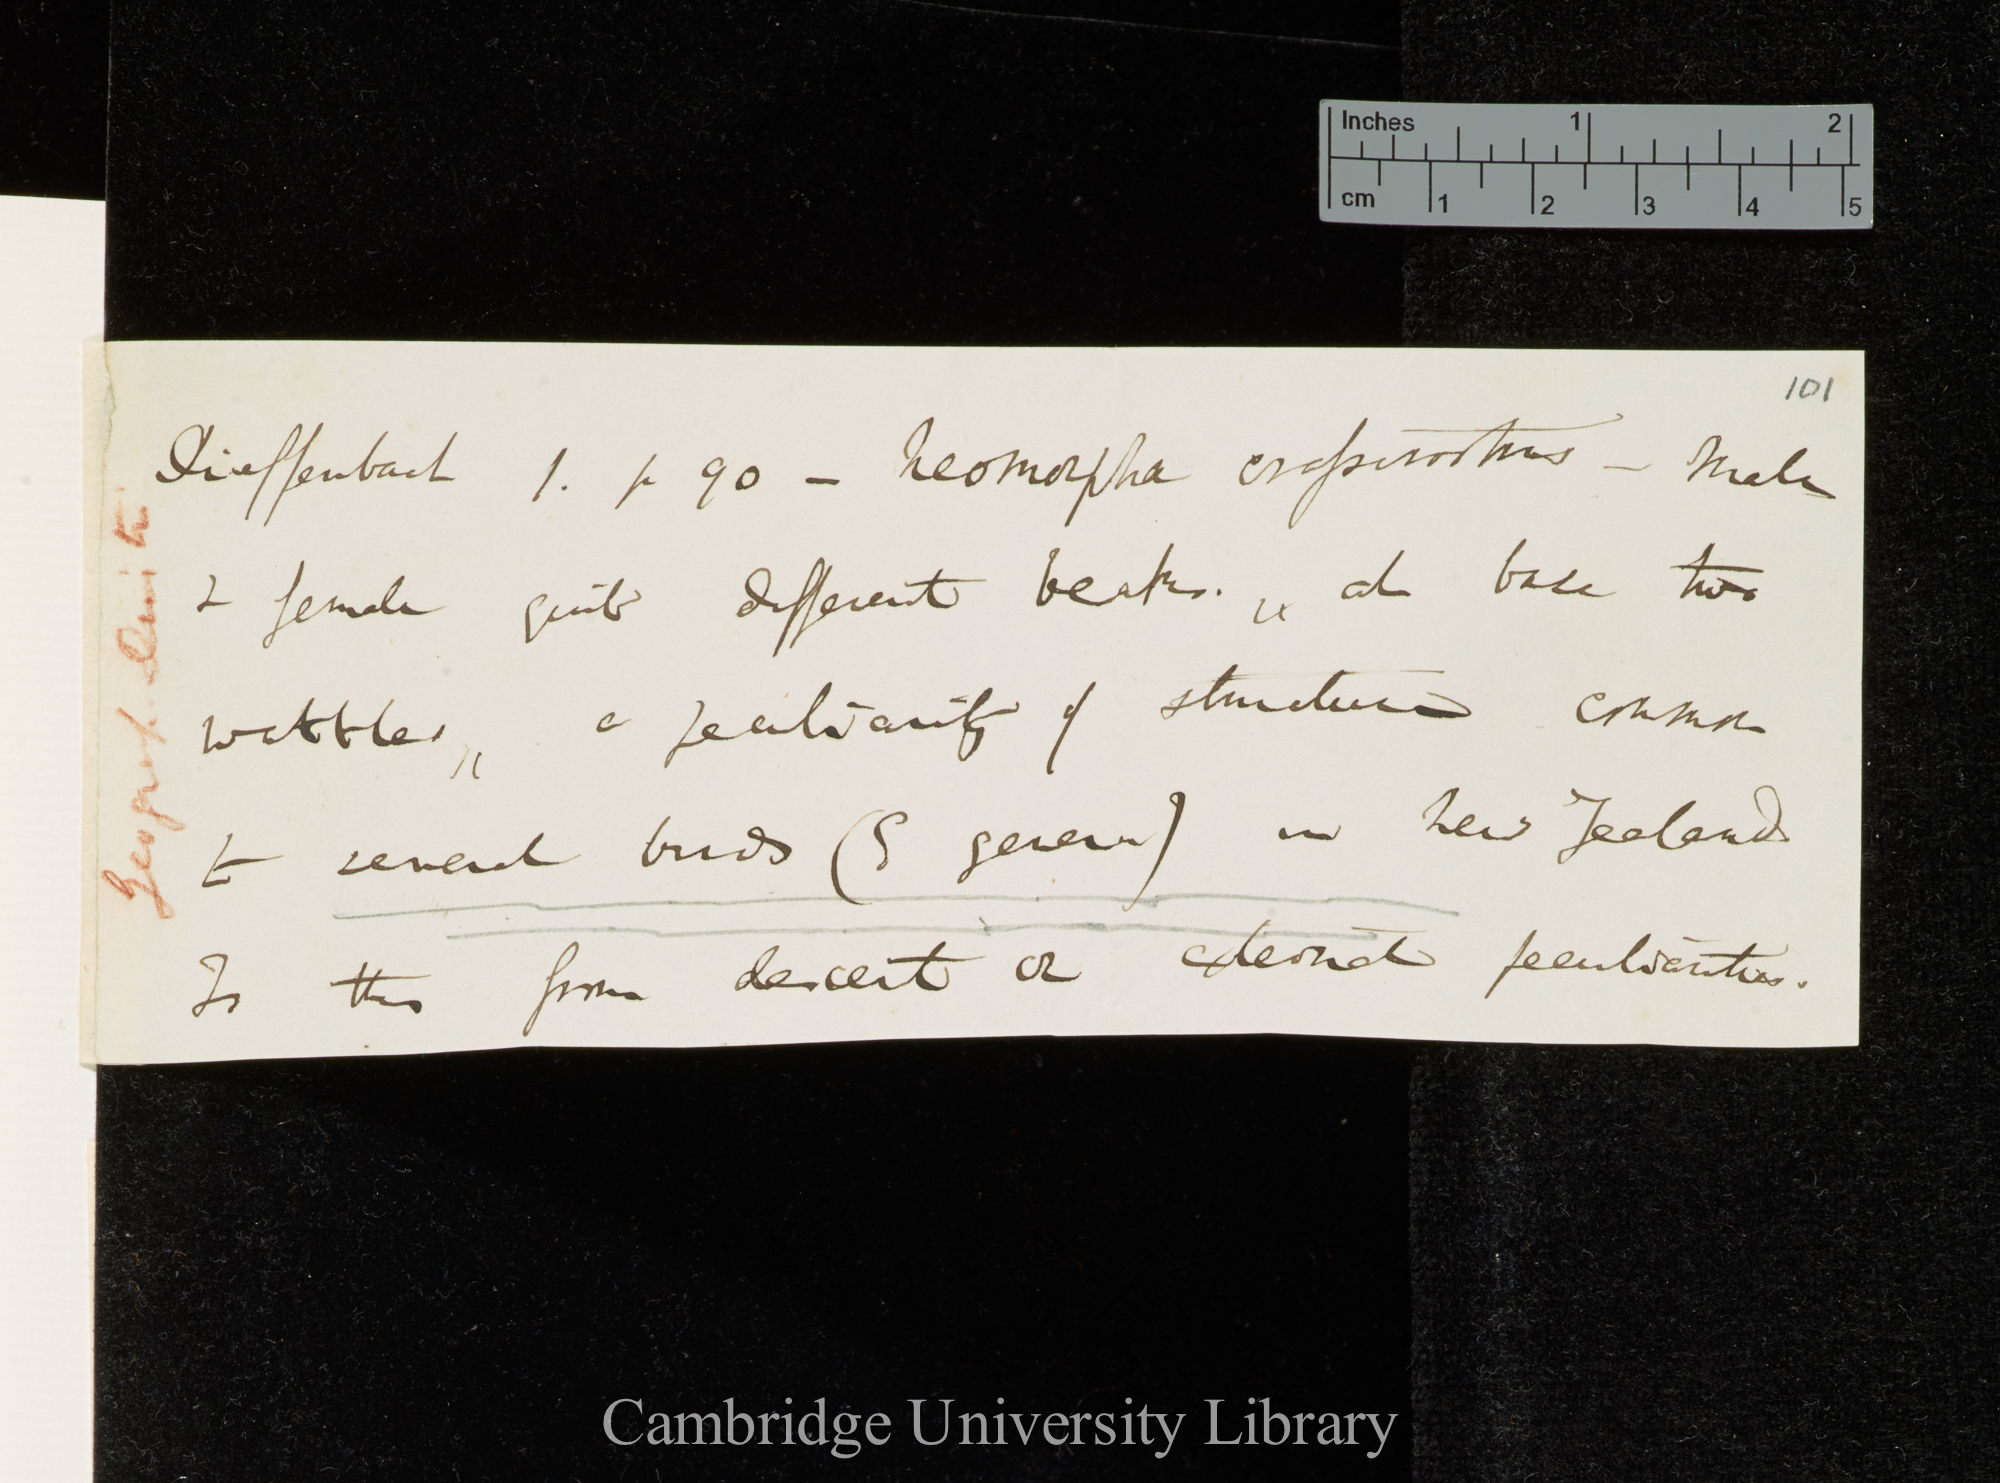 Inches 1 2
cm 1 2 3 4 5
101
Dieffenbach 1. p 90 — Neomorpha crassirostrus — Male
& female quite different beaks. " at base two
wattles " a peculiarity of structure common
to several birds (5 genera) in New Zealand
Is this from descent or external peculiarities.
Geograph. Distrib.
Cambridge University Library